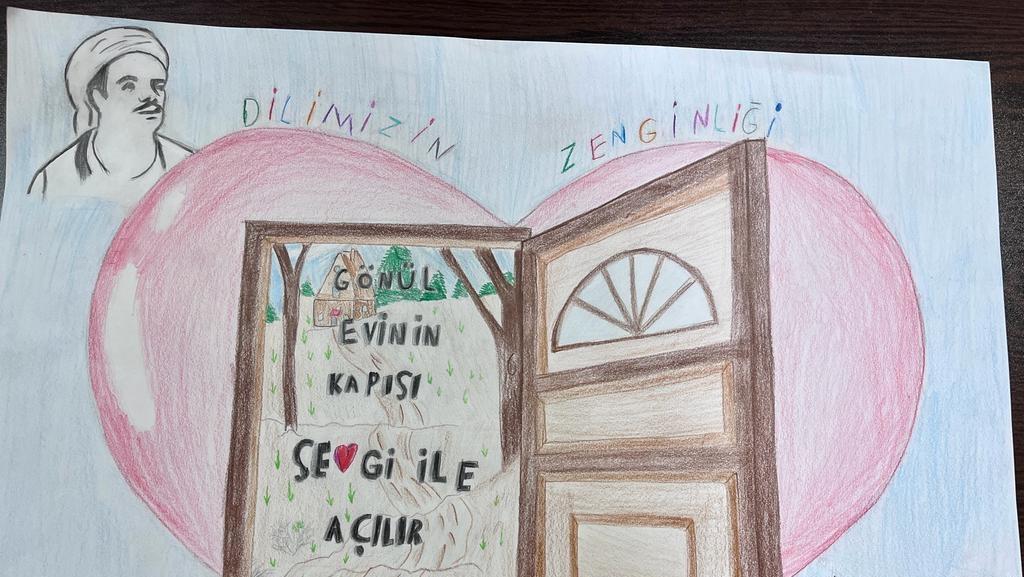 DİLİMİZİN ZENGİNLİĞİ
GÖNÜL
EVİNİN
KAPISI
SE♥Gİ İLE
AÇILIR